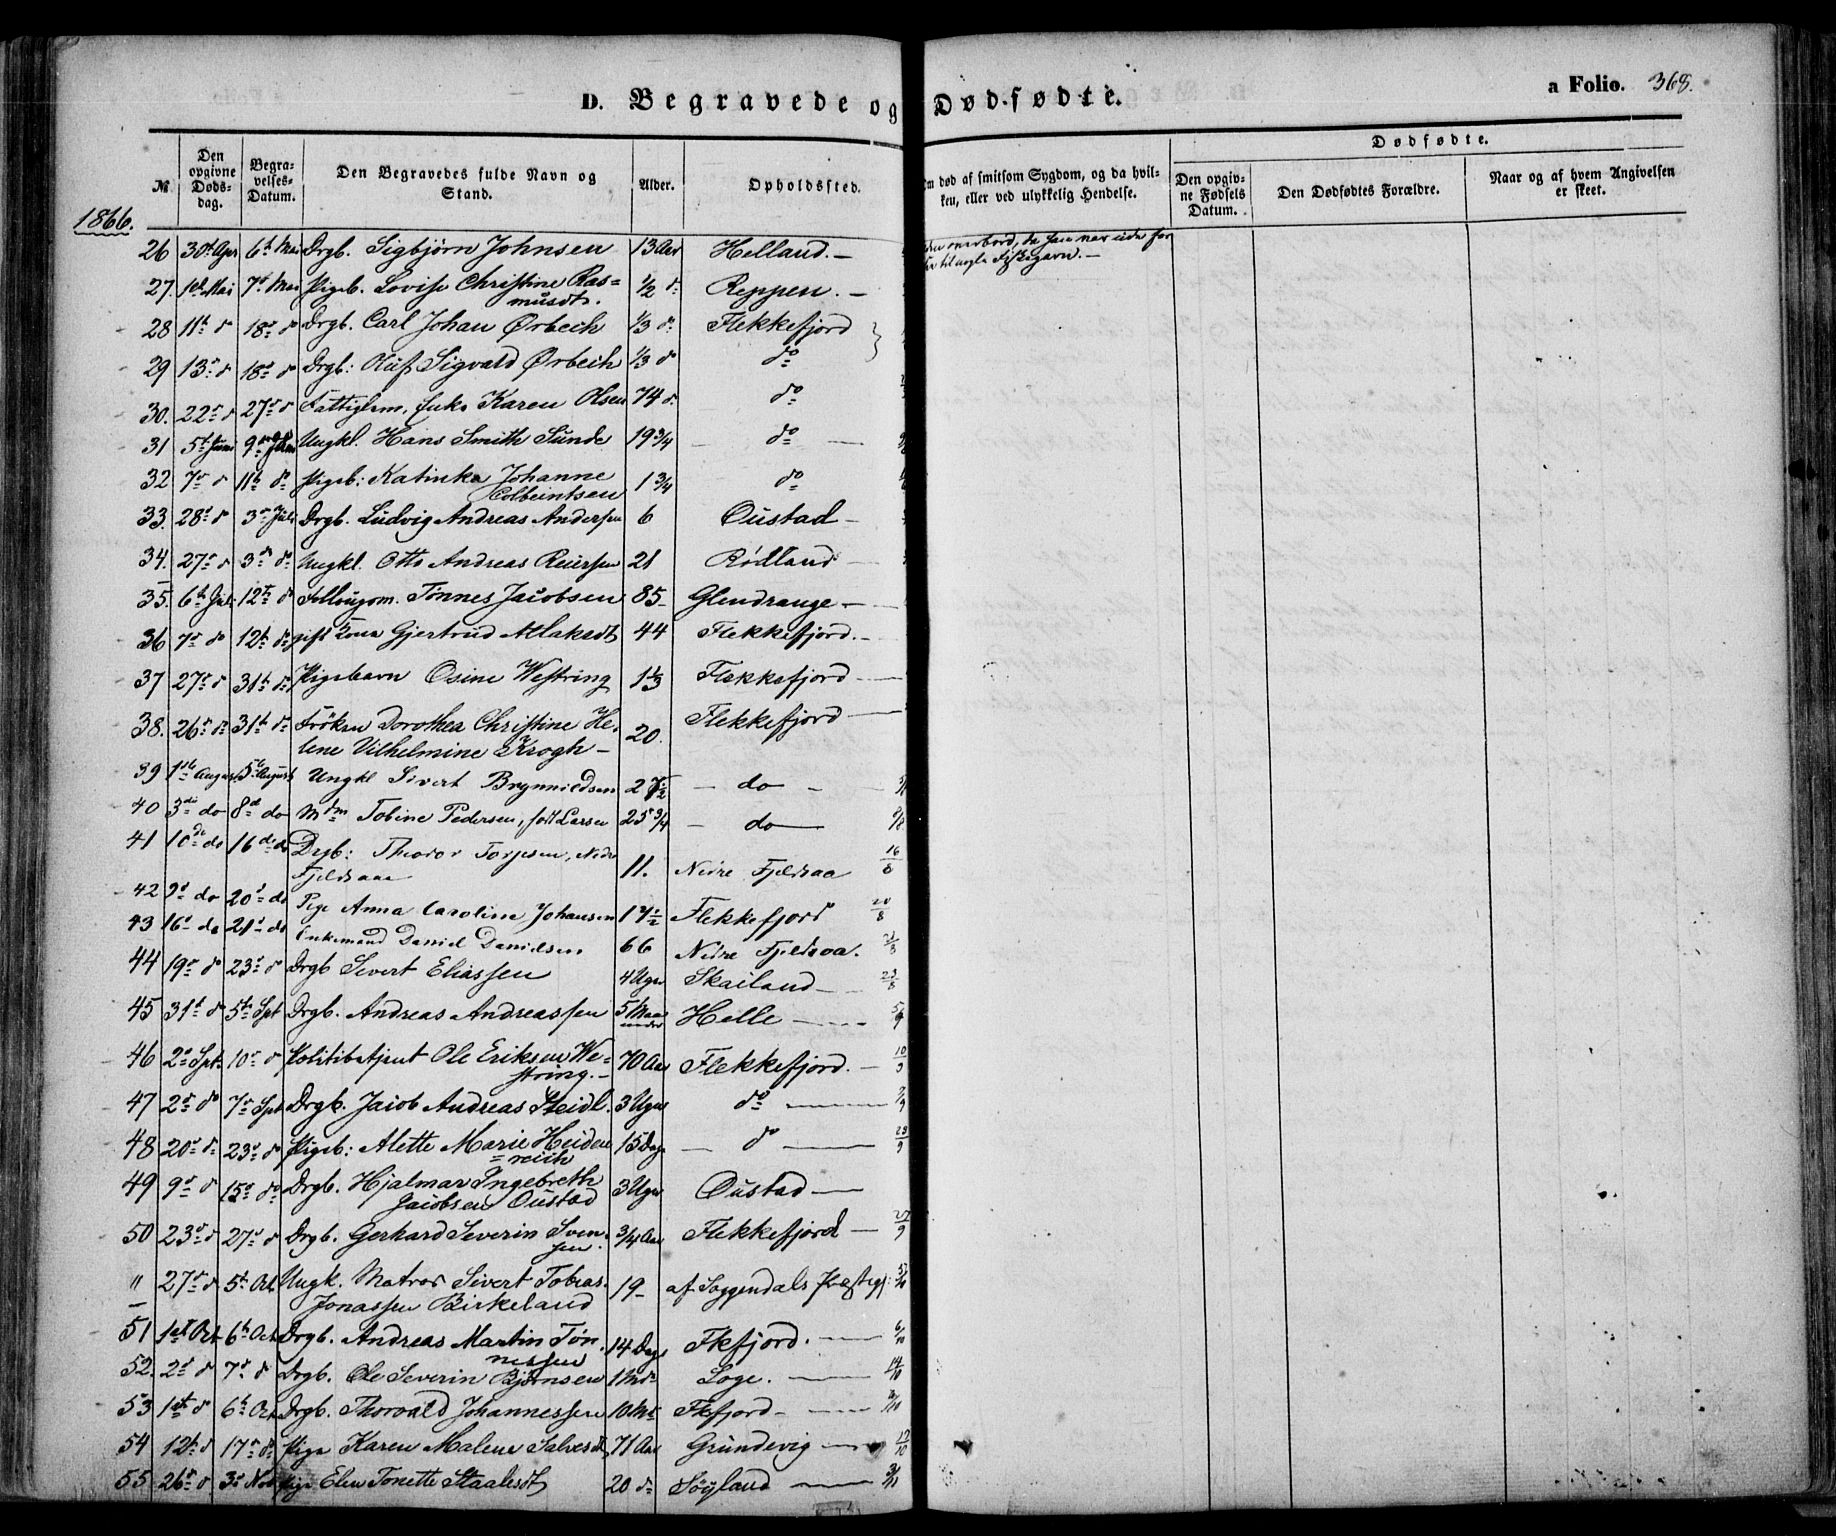 D. Begravede og Dødfødte.
a Folio. 368.
№
Den opgivne Dødsdag.
Begravelses-Datum.
Den Begravedes fulde Navn og Stand.
Alder.
Opholdssted.
Om død af smitsom Sygdom, og da hvilken, eller ved ulykkelig Hendelse.
Dødfødte.
Den opgivne Fødsels Datum.
Den Dødfødtes Forældre.
Naar og af hvem Angivelsen er skeet.
1866.
26 30te Apr 6te Mai Drgb. Sigbjørn Johnsen 13 Aar Helland. —
overbord, da han var ude for
Fiskegarn. —
27. 1ste Mai 7de Mai Pigeb. Lovise Christine Ras=
musdt. ½ do Reppen. —
28 11te do 18de do Drgb. Carl Johan Ørbech ⅓ do Flekkefjord
29 13de do 18de do Drgb: Oluf Sigvald Ørbech ⅓ do do
30. 22de do 27de do Fattiglem, Enke Karen Olsen 74 do do
31 5te Juni 9de Juni Ungkl. Hans Smith Sunde 19¾ — do —
32 7de do 11te do Pigeb: Katinka Johanne
Colbeintsen 1¾ do
33. 28de do 3de Juli Drgb. Ludvig Andreas Andersen 6 Oustad —
34. 27de do 3de do Ungkl. Otto Andreas Reiersen 21 Rødland —
35. 6te Juli 12te do Tønnes Jacobsen 85 Glendrange —
36 7de do 12te do gift Kone Gjertrud Atlaksdt 44 Flekkefjord. —
37 27de do 31te do Pigebarn Osine Westring 1⅓ Flekkefjord —
38. 26de do 31te do Frøken Dorothea Christine He-
lene Vilhelmine Krogh — 20. Flekkefjord —
39 1ste August 5te August Ungkl Sivert Brynnildsen 27½ — do —
40 3die do 8de do Mdm Tobine Pedersen, født Larsen 25¾ — do —
41 10de do 16de do Drgb: Theodor Torjesen, Nedre
Fjeldsaa 11. Nedre Fjeldsaa 16/8
42 9de do 20de do Pige Anna Caroline Johansen 17½ Flekkefjord 20/8
43 16de do 21de do Enkemand Daniel Danielsen 66 Nedre Fjeldsaa. 21/8
44 19de do 23de do Drgb Sivert Eliassen 4 Uger Skailand — 23/8
45 31te do 5te Spt Drgb. Andreas Andreassen 5 Maa
neder Helle — 5/9
46 2de Spt. 10de do Politibetjent Ole Eriksen We=
string. — 70 Aar Flekkefjord. — 10/9
47 2de do 7de Spt Drgb. Jacob Andreas Steidl. 3 Uger do — 7/9
48 20de do 23de do Pigeb: Alette Marie Heiden
=reich 15 Dage — do — 23/9
49 9de do 15de do Drgb. Hjalmar Ingebreth
Jacobsen Oustad 3 Uger Oustad —
50 23de do 27de do Drgb. Gerhard Severin Sven-
sen. ¾ Aar Flekkefjord — 27/9
" 27de do 5te Oct Ungk. Matros Sivert Tobias
Jonassen Birkeland 19 — af Soggendals Præstegj: 5/10
51 1ste Oct 6te Oct Drgb. Andreas Martin Tøn-
nessen 14 Dage Fkfjord. — 6/10
52. 2de do 7de do Drgb. Ole Severin Bjørnsen 1 Md Loge. — 14/10
53 1ste do 6te Oct Drgb. Thorvald Johannessen 10 Mdr Fkfjord —
54 12te do 17de do Pige Karen Malene Salvesdt, 71 Aar Grundevig — 17/10
55 26de do 3de Nov Pige Elen Tonette Staalesdt 20 do Søyland — 3/11